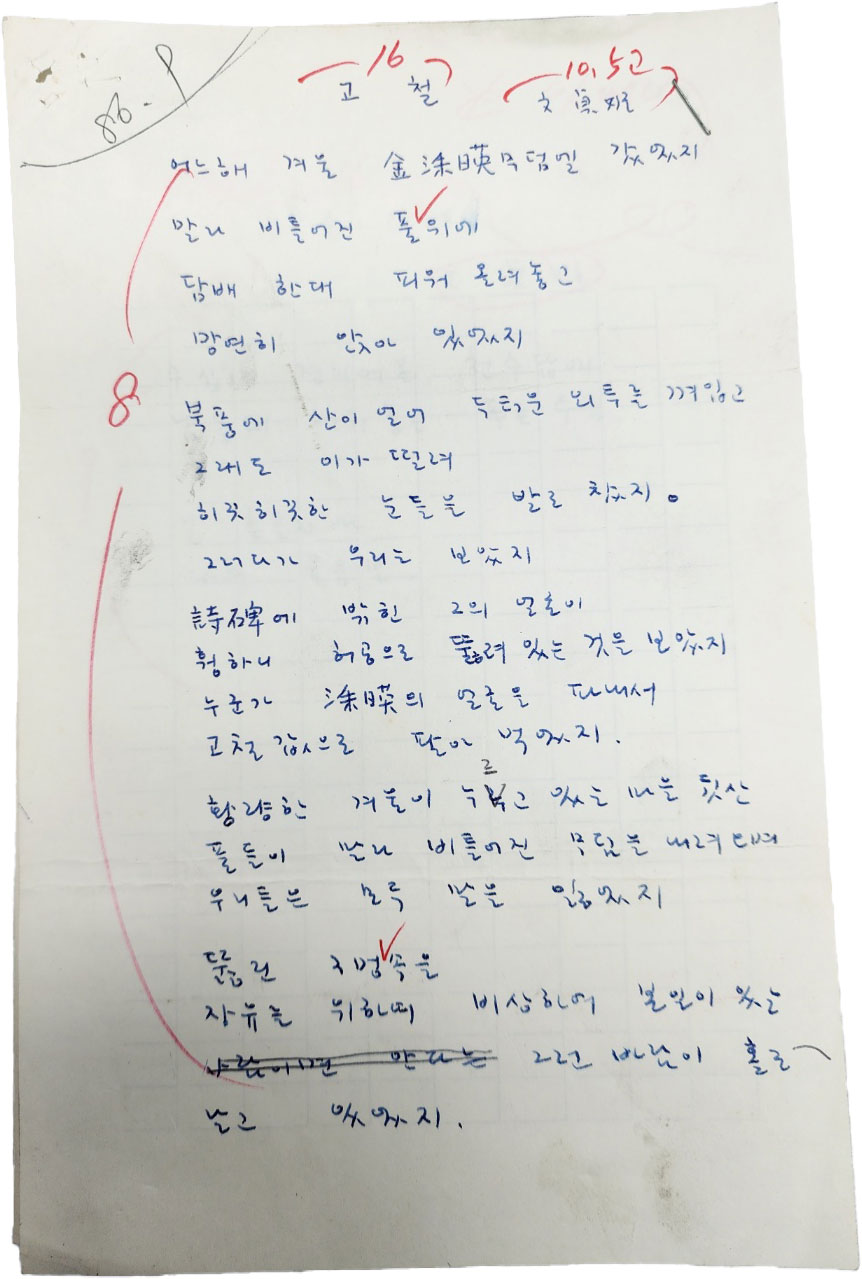 86-9
16
고 철
10, 5고
文
어느해 겨울 金洙暎무덤엘 갔었지
말라 비틀어진 풀위에
담배 한대 피워 올려놓고
망연히 앉아 있었지
8
북풍에 산이 얼어 두터운 외투를 껴입고
그래도 이가 떨려
히끗히끗한 눈들을 발로 찼지。
그러다가 우리는 보았지
詩碑에 밖힌 그의 얼굴이
휑하니 허공으로 뚫려 있는 것을 보았지
누군가 洙暎의 얼굴을 파내서
고철값으로 팔아 먹었지.
황량한 겨울이 누르고 있는 마을 뒷산
풀들이 말라 비틀어진 무덤을 내려오며
우리들은 모두 말을 잃었지
뚫린 시멘속을
자유를 위하여 비상하여 본일이 있는
사람이면 안다는 그런 바람이 홀로
날고 있었지.